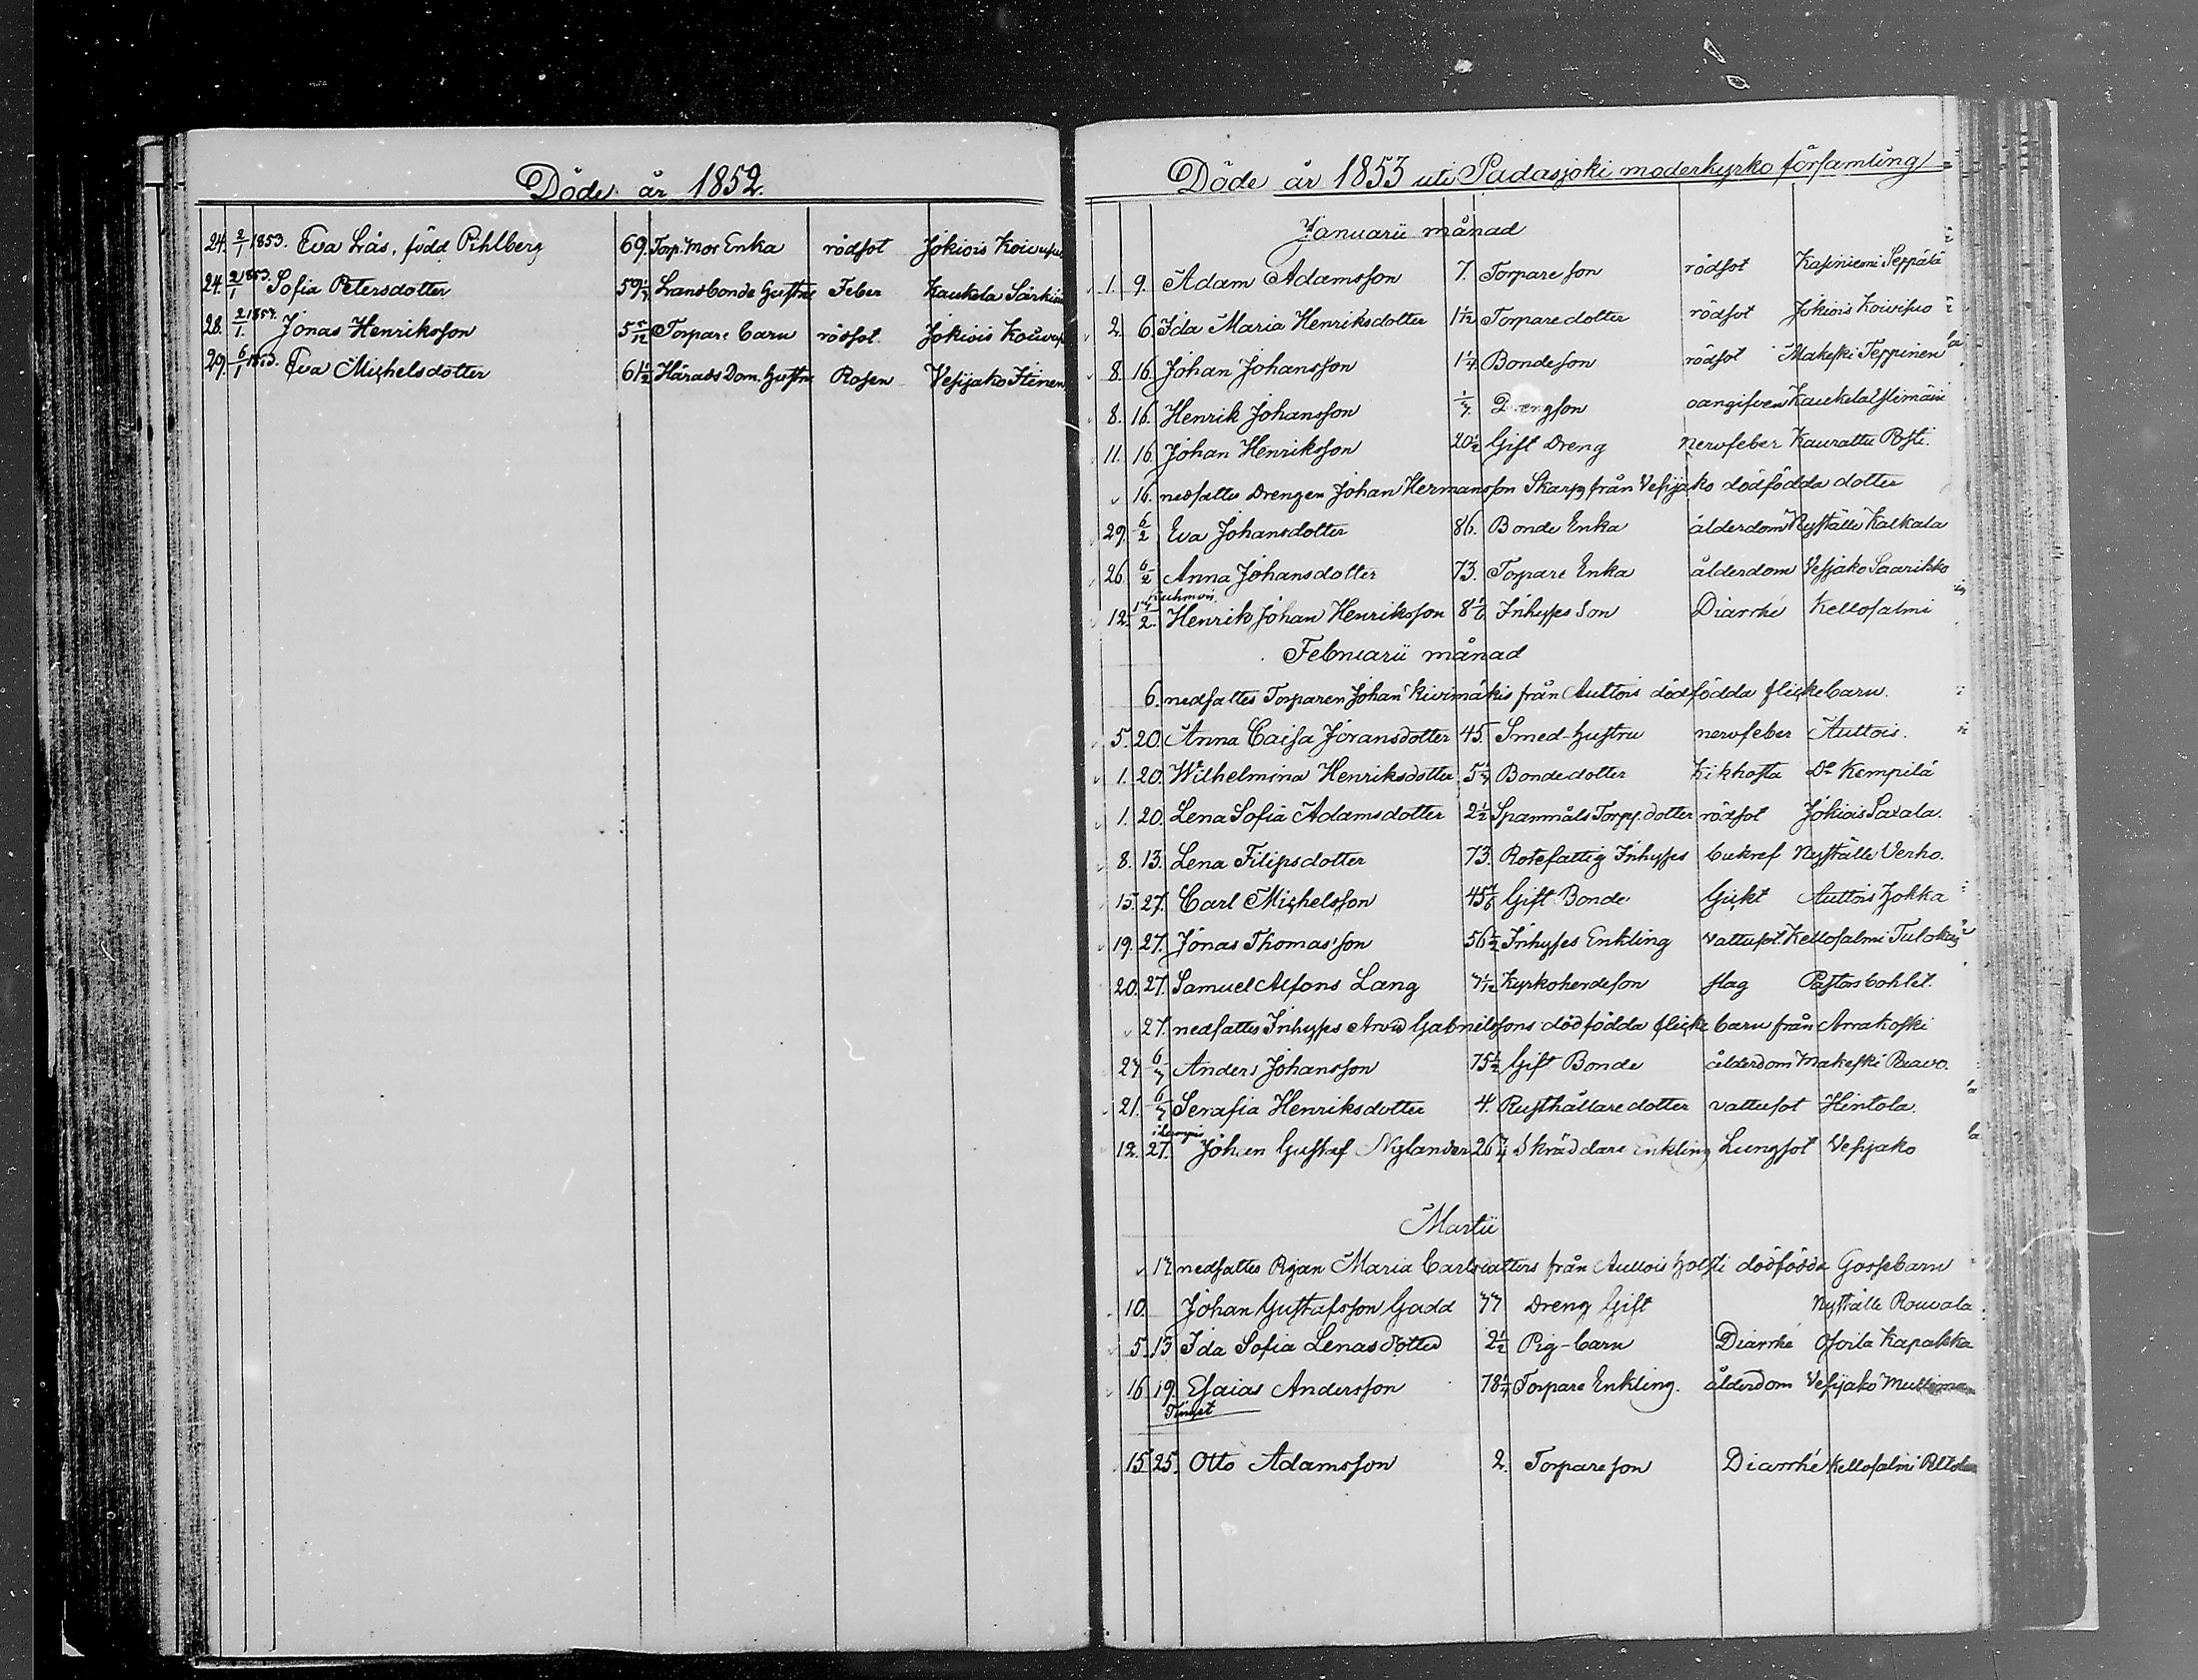 Döde år 1852.
24. 2/1 1853. Eva Lås, född Pihlberg 69. Torp. mor Enka rödsot Jokiois
24. 2/1 1853. Sofia Petersdotter 59 Landbonde Hustru Feber Kaukela
28. 2/1. Jonas Henriksson 5 Torpare barn rödsot Jokiois
29. 6/1 1853. Eva Michelsdotter 61 1/2 Härads Dom. Hustru Rosen Vesijako Itinen
Döde år 1853 uti Padasjoki moderkyrko församling
Januarii månad
1. 9. Adam Adamsson 7. Torpare son rödsot Kasiniemi Seppälä
2. 6. Ida Maria Henriksdotter 1 1/12 Torpare dotter rödsot Jokiois Koivisuo
8. 16. Johan Johansson 1 1/4 Bondeson rödsot Makeski Teppinen
8. 16. Henrik Johansson Drengson oangifven Kaukela
11. 16. Johan Henriksson 20 1/2 Gift Dreng Nervfeber Kaurattu Rosti.
16. nedsattes Drengen Johan Hermansson Skarp från Vesijako dödfödda dotter
29. 6/2 Eva Johansdotter 86. Bonde Enka ålderdom Nyställe Kalkala
26. 6/2 Anna Johansdotter 73. Torpare Enka ålderdom Vesijako Saarikko
12. Henrik Johan Henriksson 8 1/6 Inhyses Son Diarrhé Kellosalmi
Februarii månad
6. nedsattes Torparen Johan Kivimäkis från Auttois dödfödda flickebarn.
5. 20. Anna Caisa Göransdotter 45. Smed-hustru nervfeber Auttois.
1. 20. Wilhelmina Henriksdotter 5 Bondedotter Kikhosta Do Kempilä
1. 20. Lena Sofia Adamsdotter 2 1/2 Spanmåls Torp. dotter rödsot Jokiois Saxala.
8. 13. Lena Filipsdotter 73. Rotefattig Inhyses bukref Nyställe Verho.
15. 27. Carl Michelsson 45 Gift Bonde Gickt Auttois Jokka
19. 27. Jonas Thomasson 56 1/2 Inhyses Enkling vattusot. Kellosalmi
20. 27. Samuel Alfons Lang Kyrkoherdeson slag Pastors bohlet.
27. nedsattes Inhyses Arvid Gabrielssons dödfödda flicke barn från Arrakoski
Anders Johansson 75 1/2 Gift Bonde ålderdom Makeski Paavo.
21. Serafia Henriksdotter 4. Rusthållare dotter vattusot Hintola.
12. 27. Johan Gustaf Nylander 26 Skräddare Enkling Lungsot Vesijako
Martii
nedsattes Pigan Maria Carlsdotters från Auttois Holsti dödfödda Gossebarn
10. Johan Gustafsson Gadd 77 Dreng Gift Nyställe Rouvala
5. 13 Ida Sofia Lenasdotter 2 1/2 Pig-barn Diarrhé Osoila Kapakka
16. 19. Esaias Andersson 78 Torpare Enkling. ålderdom Vesijako
Tinget
15. 25. Otto Adamsson 2. Torpare son Diarrhé Kellosalmi